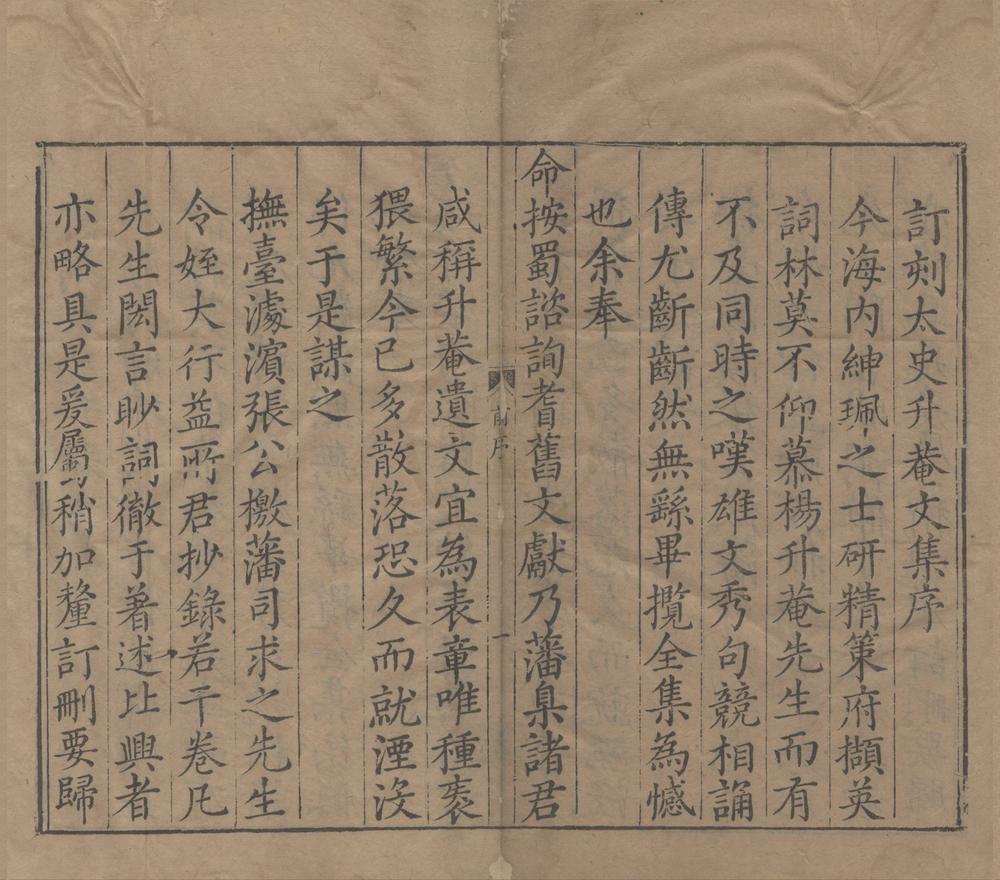 訂刻太史升菴文集序
今海内紳珮之士研精策府擷英
詞林莫不仰慕楊升菴先生而有
不及同時之嘆雄文秀句競相誦
傳尤齗齗然無繇畢攬全集為憾
也余奉
命按蜀諮詢耆舊文獻乃藩臬諸君
前序
一
咸稱升菴遺文宜為表章唯種袠
猥繁今已多散落恐久而就湮没
矣于是謀之
撫臺濾濵張公檄藩司求之先生
令姪大行益所君抄錄若干卷凡
先生閎言眇詞徹于著述比興者
亦略具是爰屬稍加釐訂刪要歸